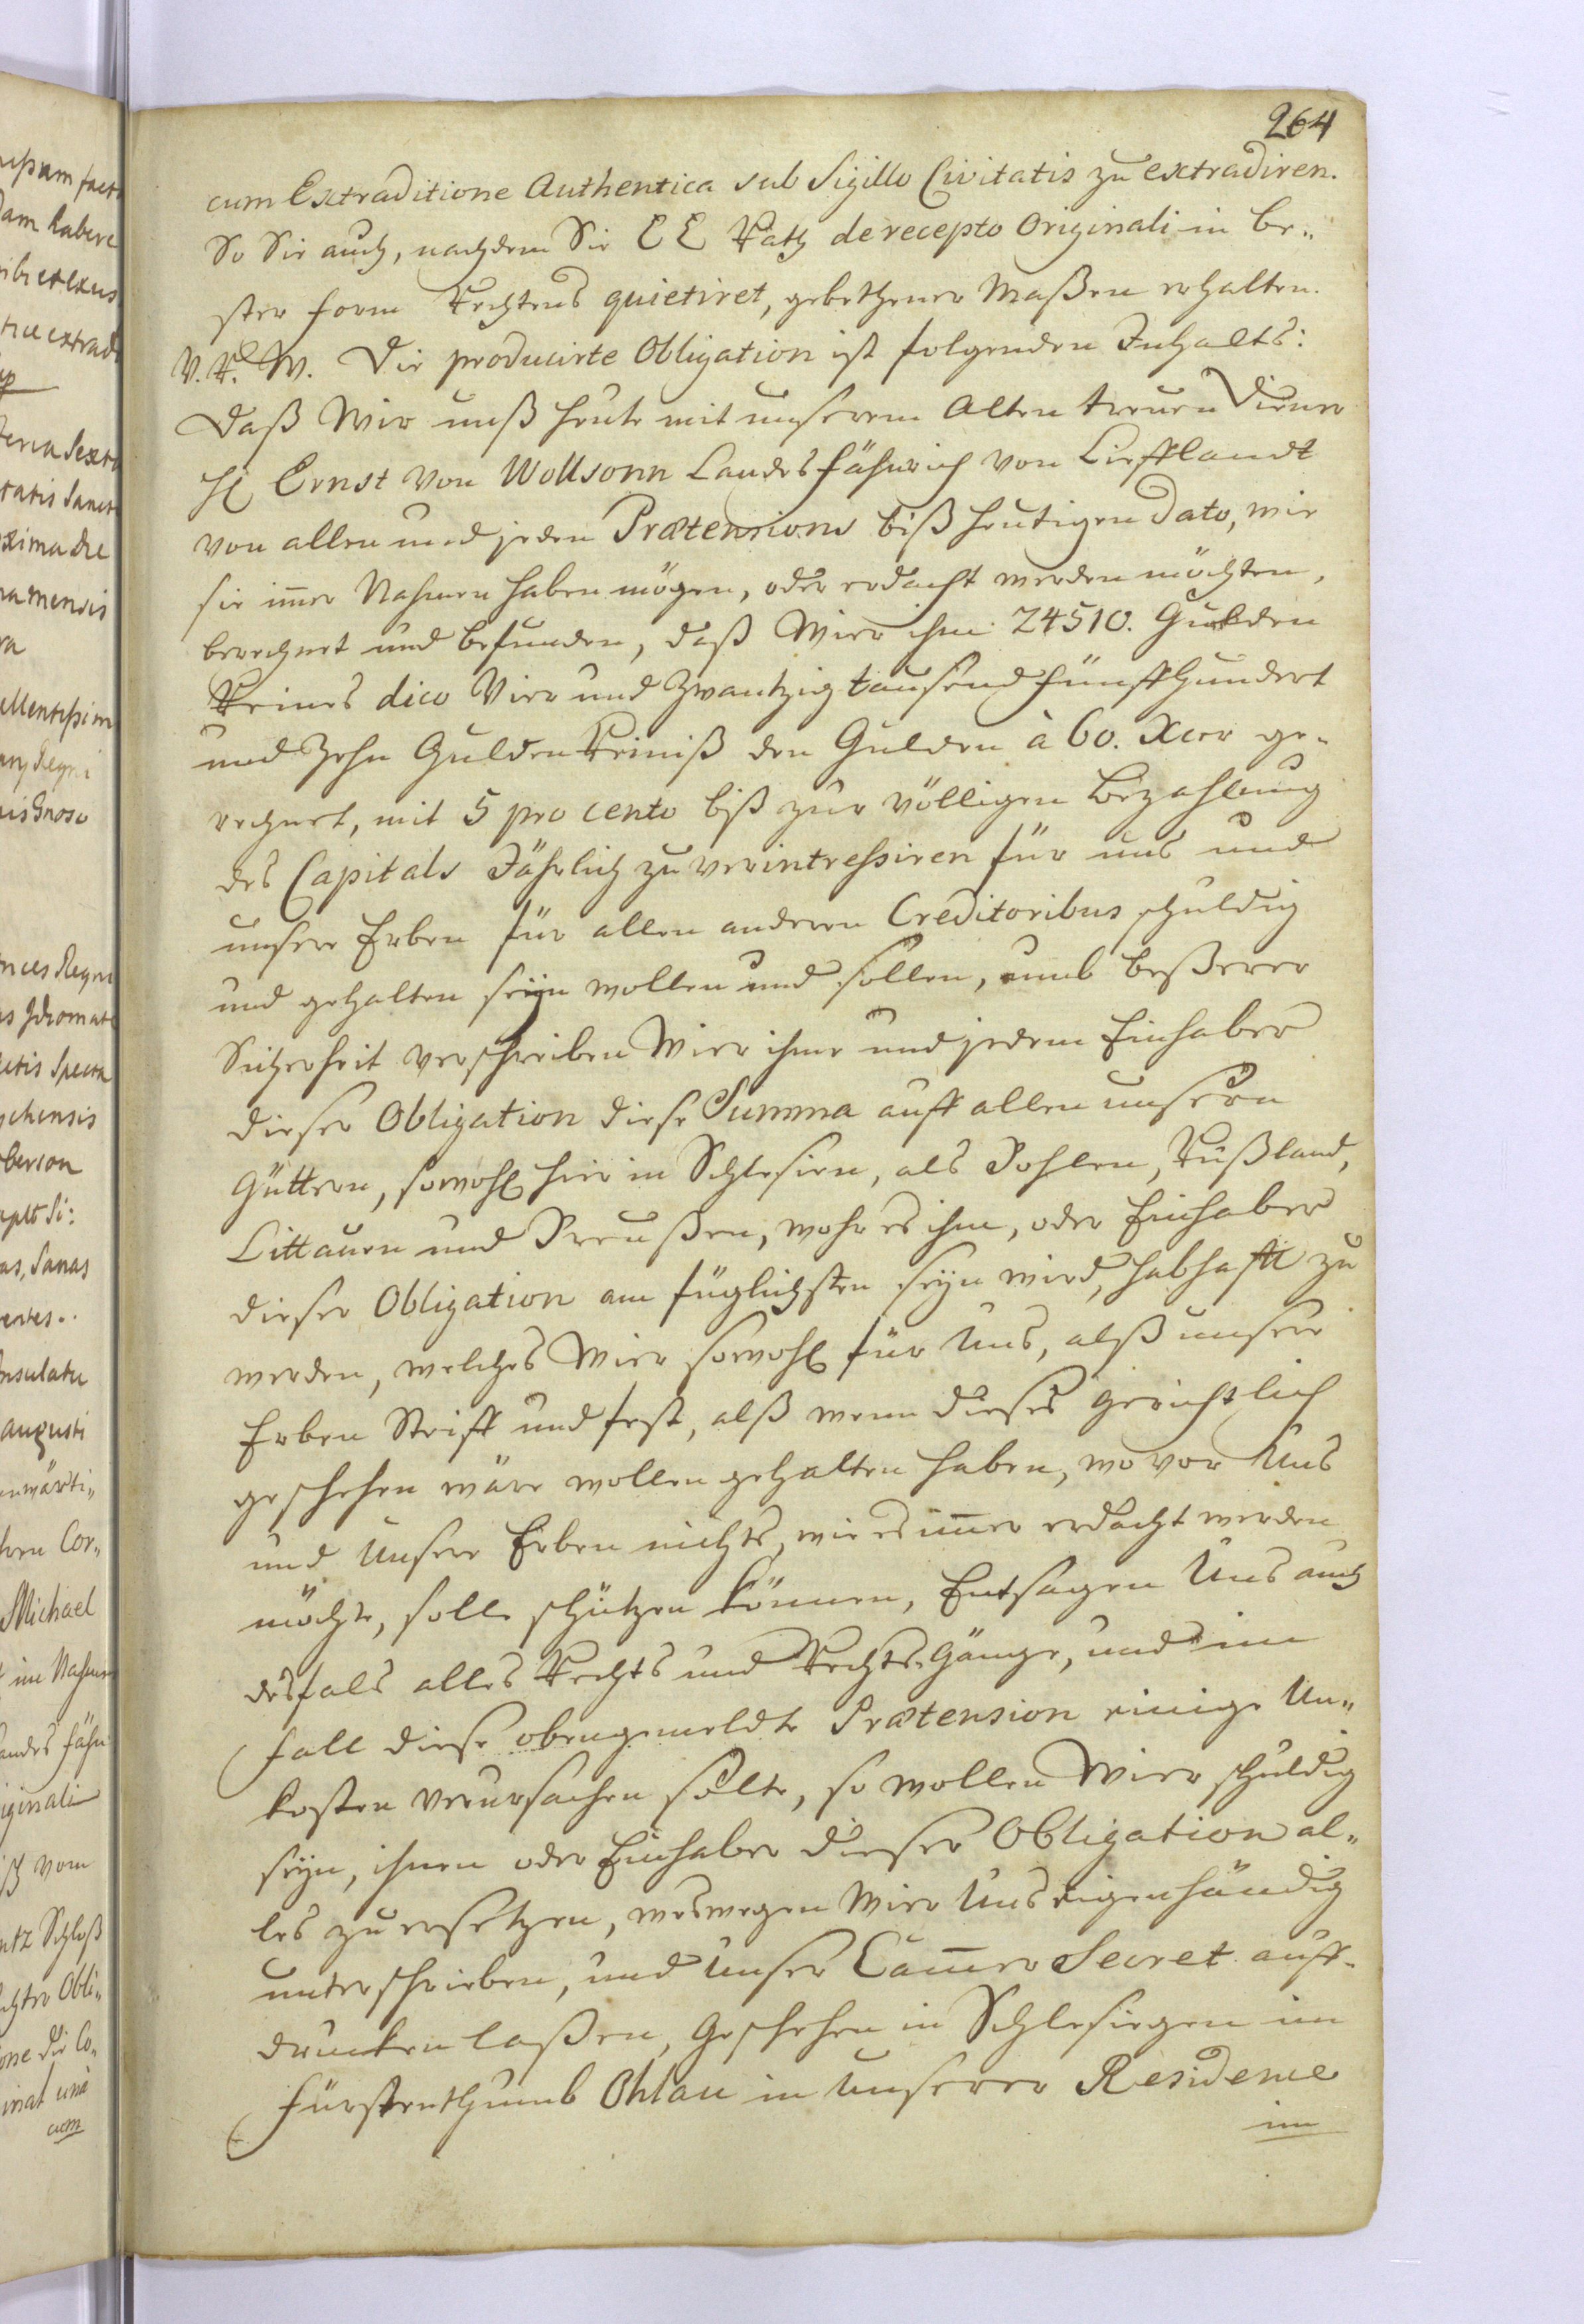 264
cum Extraditione Authentica sub Sigillo Civitatis zu extradiren.
So Sie auch, nachdem Sie E E Rath de recepto Originali in be„
ster form Rechtens quietiret, gebethener Maßen erhalten.
V. R. W. Die producirte Obligation ist folgenden Inhalts:
Daß Wir unß heute mit unserem Alten treuen Diener
H Ernst von Wollsonn Landesfähnrich von Liefflandt
von allen und jeden Prætensions biß heutigen Dato, wie
sie im̄er Nahmen haben mögen, oder erdacht werden möchten,
berechnet und befunden, daß Wier ihm 24510. Gulden
Reines dico Vier und Zwantzig tausend fünffhundert
und Zehn Gulden Reiniß den Gulden à 60. Xcer ge„
rechnet, mit 5 pro cento biß zur völligen Bezahlung
des Capitals Jährlich zu verintressiren für uns und
unsere Erben für allen anderen Creditoribus schuldig
und gehalten seÿn wollen und sollen, umb beßerer
Sicherheit verschreiben Wier ihme und jedem Einhaber
dieser Obligation diese Summa auff allen unsern
Güttern, sowohl hier in Schlesien, als Pohlen, Rußland,
Littauen und Preußen, wohr es ihm, oder Einhaber
dieser Obligation am füglichsten seÿn wird, habhafft zu
werden, welches Wier sowohl für Uns, alß unsere
Erben Steiff und fest, alß wenn dieses gerichtlich
geschehen wäre wollen gehalten haben, wo vor Uns
und Unsere Erben nichts, wie es im̄er erdacht werden
möchte, solle schützen können, Entsagen Uns auch
desfals alles Rechts und Rechts-Gänge, und im
fall diese obengemeldte Prætension einige Un„
kosten verursachen solte, so wollen Wier schuldig
seÿn, ihnen oder Einhaber dieser Obligation al„
les zu ersetzen, weswegen Wier Uns eigenhändig
unterschrieben, und Unser Cam̄er Secret auff-
drucken laßen, Geschehen in Schlesiegen im
fürstenthumb Ohlau in Unserer Residence
im